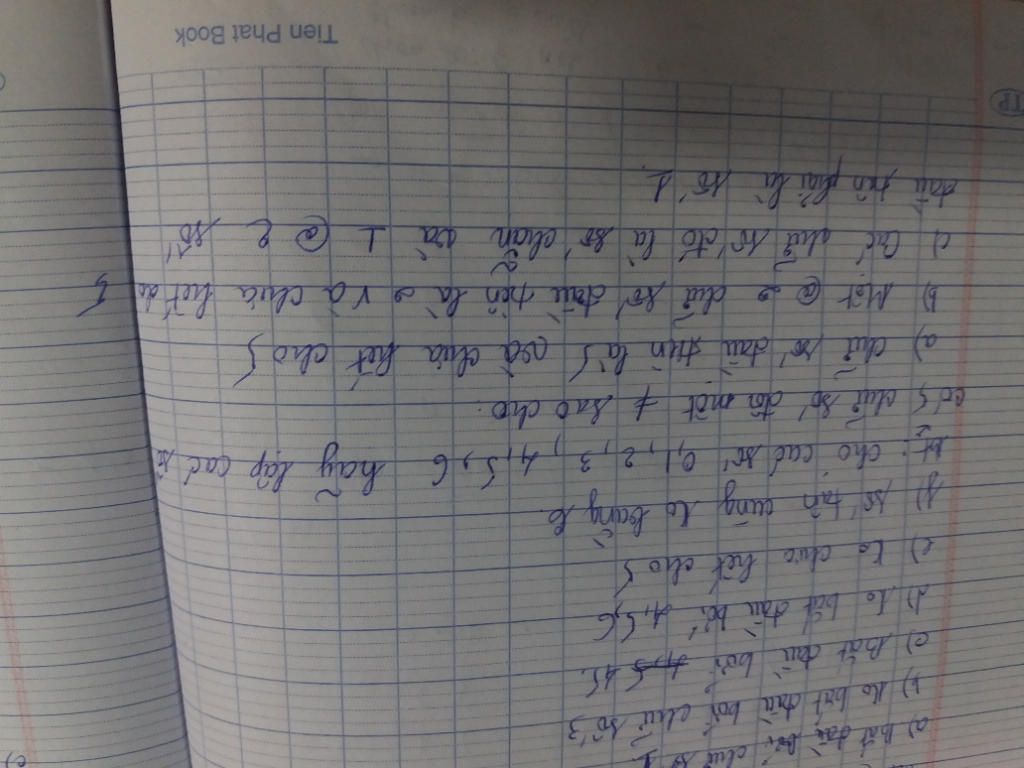 a) bắt đầu bởi chữ số 1.
b) ko bắt đầu bởi chữ số 3
c) bắt đầu bởi 45.
d) ko bắt đầu bởi 4,5,6
e) ko chia hết cho 5
f) số tận cùng ko bằng 6.
bt: cho các số 0,1,2,3,4,5,6 hãy lập các số
có 5 chữ số đôi một ≠ sao cho.
a) chữ số đầu tiên là 5 và chia hết cho 5
b) Một chữ số đầu tiên là và chia hết cho 5
c) các chữ số đó là số chẵn và 1 2 số
đầu tiên phải là số 1.
Tien Phat Book
TP